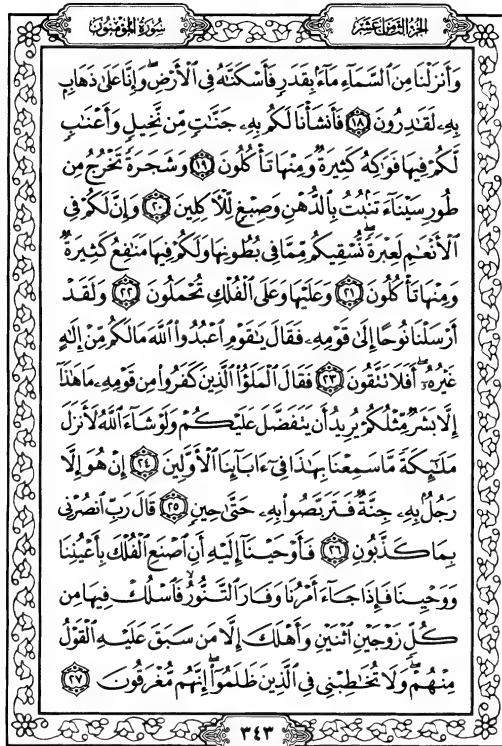 الجزء الثامن عشر
سورة المؤمنون
وَأَنزَلْنَا مِنَ ٱلسَّمَآءِ مَآءًۢ بِقَدَرٍ فَأَسْكَنَّٰهُ فِى ٱلْأَرْضِ ۖ وَإِنَّا عَلَىٰ ذَهَابٍۭ
بِهِۦ لَقَٰدِرُونَ ١٨ فَأَنشَأْنَا لَكُم بِهِۦ جَنَّٰتٍ مِّن نَّخِيلٍ وَأَعْنَٰبٍ
لَّكُمْ فِيهَا فَوَٰكِهُ كَثِيرَةٌ وَمِنْهَا تَأْكُلُونَ ١٩ وَشَجَرَةً تَخْرُجُ مِن
طُورِ سَيْنَآءَ تَنۢبُتُ بِٱلدُّهْنِ وَصِبْغٍ لِّلْـَٔاكِلِينَ ٢٠ وَإِنَّ لَكُمْ فِى
ٱلْأَنْعَٰمِ لَعِبْرَةً ۖ نُّسْقِيكُم مِّمَّا فِى بُطُونِهَا وَلَكُمْ فِيهَا مَنَٰفِعُ كَثِيرَةٌ
وَمِنْهَا تَأْكُلُونَ ٢١ وَعَلَيْهَا وَعَلَى ٱلْفُلْكِ تُحْمَلُونَ ٢٢ وَلَقَدْ
أَرْسَلْنَا نُوحًا إِلَىٰ قَوْمِهِۦ فَقَالَ يَٰقَوْمِ ٱعْبُدُوا۟ ٱللَّهَ مَا لَكُم مِّنْ إِلَٰهٍ
غَيْرُهُۥٓ ۖ أَفَلَا تَتَّقُونَ ٢٣ فَقَالَ ٱلْمَلَؤُا۟ ٱلَّذِينَ كَفَرُوا۟ مِن قَوْمِهِۦ مَا هَٰذَآ
إِلَّا بَشَرٌ مِّثْلُكُمْ يُرِيدُ أَن يَتَفَضَّلَ عَلَيْكُمْ وَلَوْ شَآءَ ٱللَّهُ لَأَنزَلَ
مَلَٰٓئِكَةً مَّا سَمِعْنَا بِهَٰذَا فِىٓ ءَابَآئِنَا ٱلْأَوَّلِينَ ٢٤ إِنْ هُوَ إِلَّا
رَجُلٌۢ بِهِۦ جِنَّةٌ فَتَرَبَّصُوا۟ بِهِۦ حَتَّىٰ حِينٍ ٢٥ قَالَ رَبِّ ٱنصُرْنِى
بِمَا كَذَّبُونِ ٢٦ فَأَوْحَيْنَآ إِلَيْهِ أَنِ ٱصْنَعِ ٱلْفُلْكَ بِأَعْيُنِنَا
وَوَحْيِنَا فَإِذَا جَآءَ أَمْرُنَا وَفَارَ ٱلتَّنُّورُ ۙ فَٱسْلُكْ فِيهَا مِن
كُلٍّ زَوْجَيْنِ ٱثْنَيْنِ وَأَهْلَكَ إِلَّا مَن سَبَقَ عَلَيْهِ ٱلْقَوْلُ
مِنْهُمْ ۖ وَلَا تُخَٰطِبْنِى فِى ٱلَّذِينَ ظَلَمُوٓا۟ ۖ إِنَّهُم مُّغْرَقُونَ ٢٧
٣٤٣